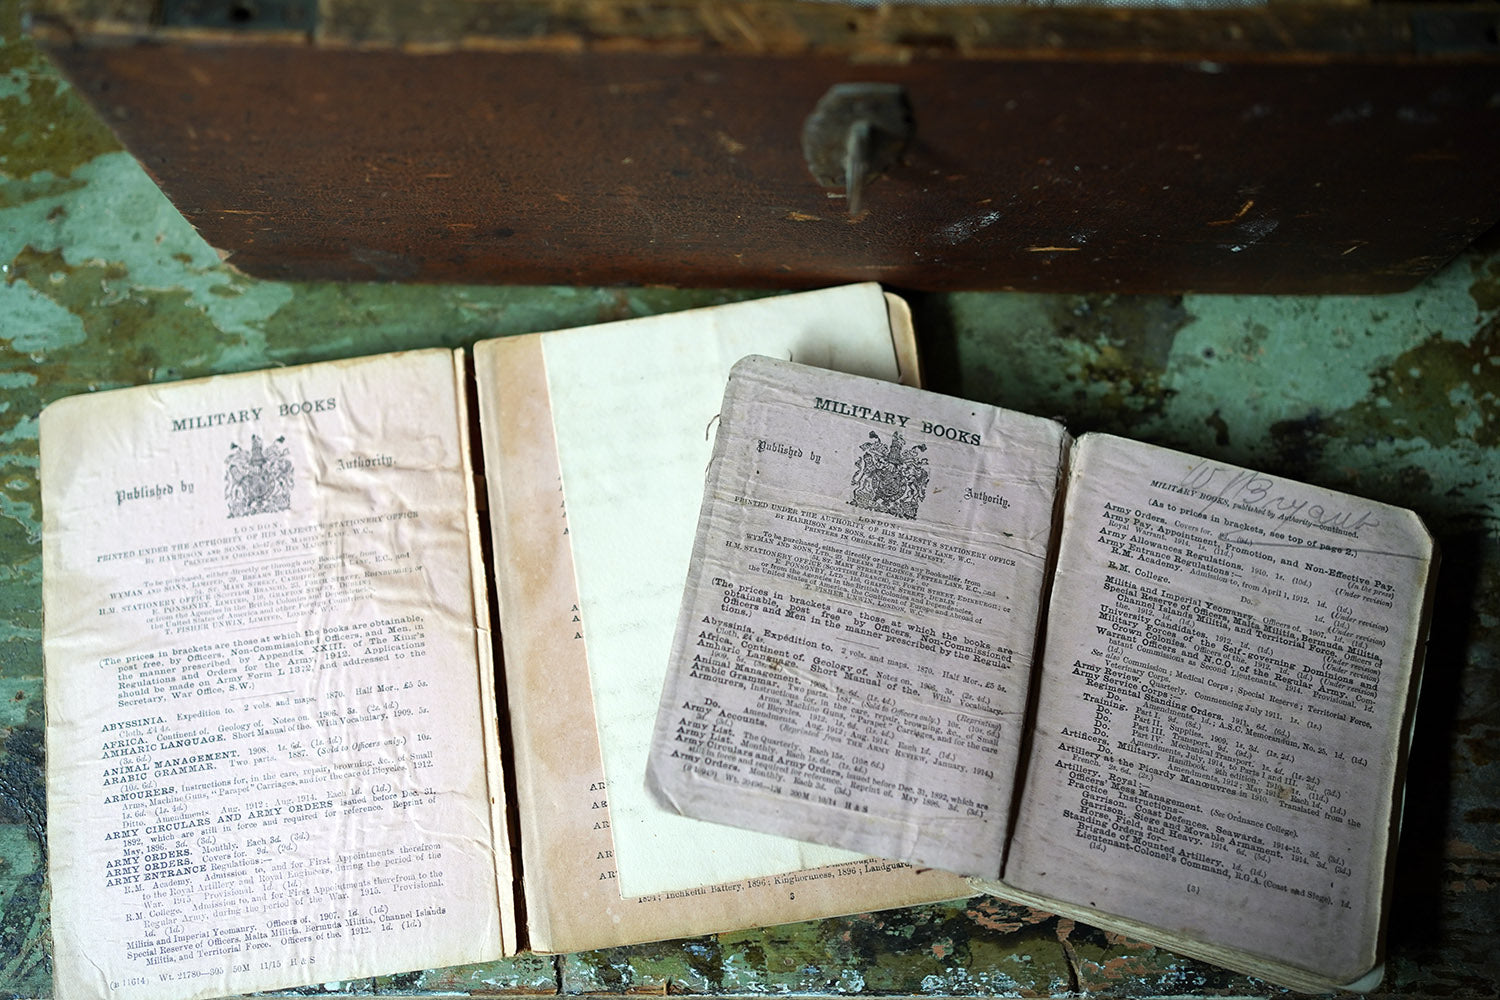 MILITARY BOOKS
Published by Authority.
LONDON:
PRINTED UNDER THE AUTHORITY OF HIS MAJESTY'S STATIONERY OFFICE
By HARRISON AND SONS, 45-47, ST. MARTIN'S LANE, W.C.,
PRINTERS IN ORDINARY TO HIS MAJESTY.
To be purchased, either directly or through any Bookseller, from
WYMAN AND SONS, LIMITED, 29, BREAMS BUILDINGS, FETTER LANE, E.C., and
54, ST. MARY STREET, CARDIFF; or
H.M. STATIONERY OFFICE (SCOTTISH BRANCH), 23, FORTH STREET, EDINBURGH; or
E. PONSONBY, LIMITED, 116, GRAFTON STREET, DUBLIN;
or from the Agencies in the British Colonies and Dependencies,
the United States of America and other Foreign Countries of
T. FISHER UNWIN, LIMITED, London, W.C.
(The prices in brackets are those at which the books are obtainable,
post free, by Officers, Non-Commissioned Officers, and Men, in
the manner prescribed by Appendix XXIII. of The King's
Regulations and Orders for the Army, 1912. Applications
should be made on Army Form L 1372 and addressed to the
Secretary, War Office, S.W.)
ABYSSINIA. Expedition to. 2 vols. and maps. 1870. Half Mor., £5 5s.
Cloth, £4 4s.
AFRICA. Continent of. Geology of. Notes on. 1906. 3s. (2s. 4d.)
AMHARIC LANGUAGE. Short Manual of the. With Vocabulary. 1909. 5s.
(3s. 6d.)
ANIMAL MANAGEMENT. 1908. 1s. 6d. (1s. 4d.)
ARABIC GRAMMAR. Two parts. 1887. (Sold to Officers only.) 10s.
(10s. 6d.)
ARMOURERS, Instructions for, in the care, repair, browning, &c., of Small
Arms, Machine Guns, "Parapet" Carriages, and for the care of Bicycles. 1912.
1s. 6d. (1s. 4d.)
Ditto. Amendments. Aug. 1912; Aug. 1914. Each 1d. (1d.)
ARMY CIRCULARS AND ARMY ORDERS issued before Dec. 31,
1892, which are still in force and required for reference. Reprint of
May, 1896. 3d. (3d.)
ARMY ORDERS. Monthly. Each 3d. (3d.)
ARMY ORDERS. Covers for. 9d. (9d.)
ARMY ENTRANCE Regulations:—
R.M. Academy. Admission to, and for First Appointments therefrom
to the Royal Artillery and Royal Engineers, during the period of the
War. 1915. Provisional. 1d. (1d.)
R.M. College. Admission to, and for First Appointments therefrom to the
Regular Army, during the period of the War. 1915. Provisional.
1d. (1d.)
Militia and Imperial Yeomanry. Officers of. 1907. 1d. (1d.)
Special Reserve of Officers, Malta Militia, Bermuda Militia, Channel Islands
Militia, and Territorial Force. Officers of the. 1912. 1d. (1d.)
(B 11614) Wt. 21780—305 50M 11/15 H & S
AR
AR
AR
AR
1894; Inchkeith Battery, 1896; Kinghornness, 1896; Landguard,
3
MILITARY BOOKS
Published by Authority.
LONDON:
PRINTED UNDER THE AUTHORITY OF HIS MAJESTY'S STATIONERY OFFICE
By HARRISON AND SONS, 45-47, ST. MARTIN'S LANE, W.C.,
PRINTERS IN ORDINARY TO HIS MAJESTY.
To be purchased, either directly or through any Bookseller, from
WYMAN AND SONS, LTD., 29, BREAMS BUILDINGS, FETTER LANE, E.C., and
54, ST. MARY STREET, CARDIFF; or
H.M. STATIONERY OFFICE (SCOTTISH BRANCH), 23, FORTH STREET, EDINBURGH; or
E. PONSONBY, LTD., 116, GRAFTON STREET, DUBLIN;
or from the Agencies in the British Colonies and Dependencies,
the United States of America, the Continent of Europe and Abroad of
T. FISHER UNWIN, LONDON, W.C.
(The prices in brackets are those at which the books are
obtainable, post free, by Officers, Non-Commissioned
Officers and Men in the manner prescribed by the Regulations.)
Abyssinia. Expedition to. 2 vols. and maps. 1870. Half Mor., £5 5s.
Cloth, £4 4s.
Africa. Continent of. Geology of. Notes on. 1906. 3s. (2s. 4d.)
Amharic Language. Short Manual of the. With Vocabulary.
1909. 5s.
Animal Management. 1908. 1s. 6d. (1s. 4d.)
Arabic Grammar. Two parts. 1887. (Sold to Officers only). 10s. (Reprinting)
Armourers, Instructions for, in the care, repair, browning, &c., of Small
Arms, Machine Guns, "Parapet" Carriages, and for the care
of Bicycles. 1912.
Do. Amendments. Aug. 1912; Aug. 1914. Each 1d. (1d.)
Army Accounts. (Reprinted from THE ARMY REVIEW, January, 1914.)
3d.
Army List. The Quarterly. Each 15s. (10s. 6d.)
Army List. Monthly. Each 1s. 6d.
Army Circulars and Army Orders, issued before Dec. 31, 1892, which are
still in force and required for reference. Reprint of. May 1896. 3d. (3d.)
Army Orders. Monthly. Each 3d. (3d.)
Wt. 20496—1M 200M 10/14 H & S
W Bryant
MILITARY BOOKS, published by Authority—continued.
(As to prices in brackets, see top of page 2.)
Army Orders. Covers for.
Army Pay, Appointment, Promotion, and Non-Effective Pay.
Royal Warrant. 1914. 1s. (1d.) (In the press)
Army Allowances Regulations. 1910. 1s. (10d.) (Under revision)
Army Entrance Regulations:—
R.M. Academy. Admission to, from April 1, 1912. 1d. (1d.)
R.M. College. Do. 1d. (1d.) (Under revision)
Militia and Imperial Yeomanry. Officers of. 1907. 1d. (1d.)
Special Reserve of Officers, Malta Militia, Bermuda Militia,
Channel Islands Militia, and Territorial Force. Officers of
the. 1912. 1d. (1d.) (Under revision)
University Candidates. 1912. 1d. (1d.) (Under revision)
Military Forces of the Self-Governing Dominions and
Crown Colonies. Officers of the. (Under revision)
Warrant Officers and N.C.O. of the Regular Army. Commissions
as Second Lieutenants. 1914. Provisional. 1d.
(1d.)
See also Veterinary Corps; Medical Corps; Special Reserve; Territorial Force.
Army Review. Quarterly. Commencing July 1911. 1s. (1s.)
Army Service Corps:—
Regimental Standing Orders. 1911. 6d. (6d.)
Do. Amendments. 1d.; A.S.C. Memorandum, No. 25. 1d. (1d.)
Training. Part I. 9d. (8d.)
Do. Part II. Supplies. 1909. 1s. 3d. (1s.)
Do. Part III. Transport. 9d. (9d.)
Do. Part IV. Mechanical Transport.
Do. Amendments, July, 1914, to Parts I and III. 1d. (1d.)
Artificers. Military. Handbook. 9th edition.
Do. Amendments. 1912; May 1914. Each 1d. (1d.)
Artillery at the Picardy Manœuvres in 1910. Translated from the
French. 2s. 6d. (2s.)
Artillery, Royal:—(See Ordnance College).
Officers' Mess Management.
Practice Instructions:—
Garrison. Coast Defences, Seawards. 1914-15. 3d. (3d.)
Garrison. Siege and Movable Armament. 1914. 3d. (3d.)
Horse, Field and Heavy. 1914. 6d. (5d.)
Standing Orders for:—
Brigade of Mounted Artillery. 1d. (1d.)
Lieutenant-Colonel's Command, R.G.A. (Coast and Siege). 1d.
(1d.)
[3]